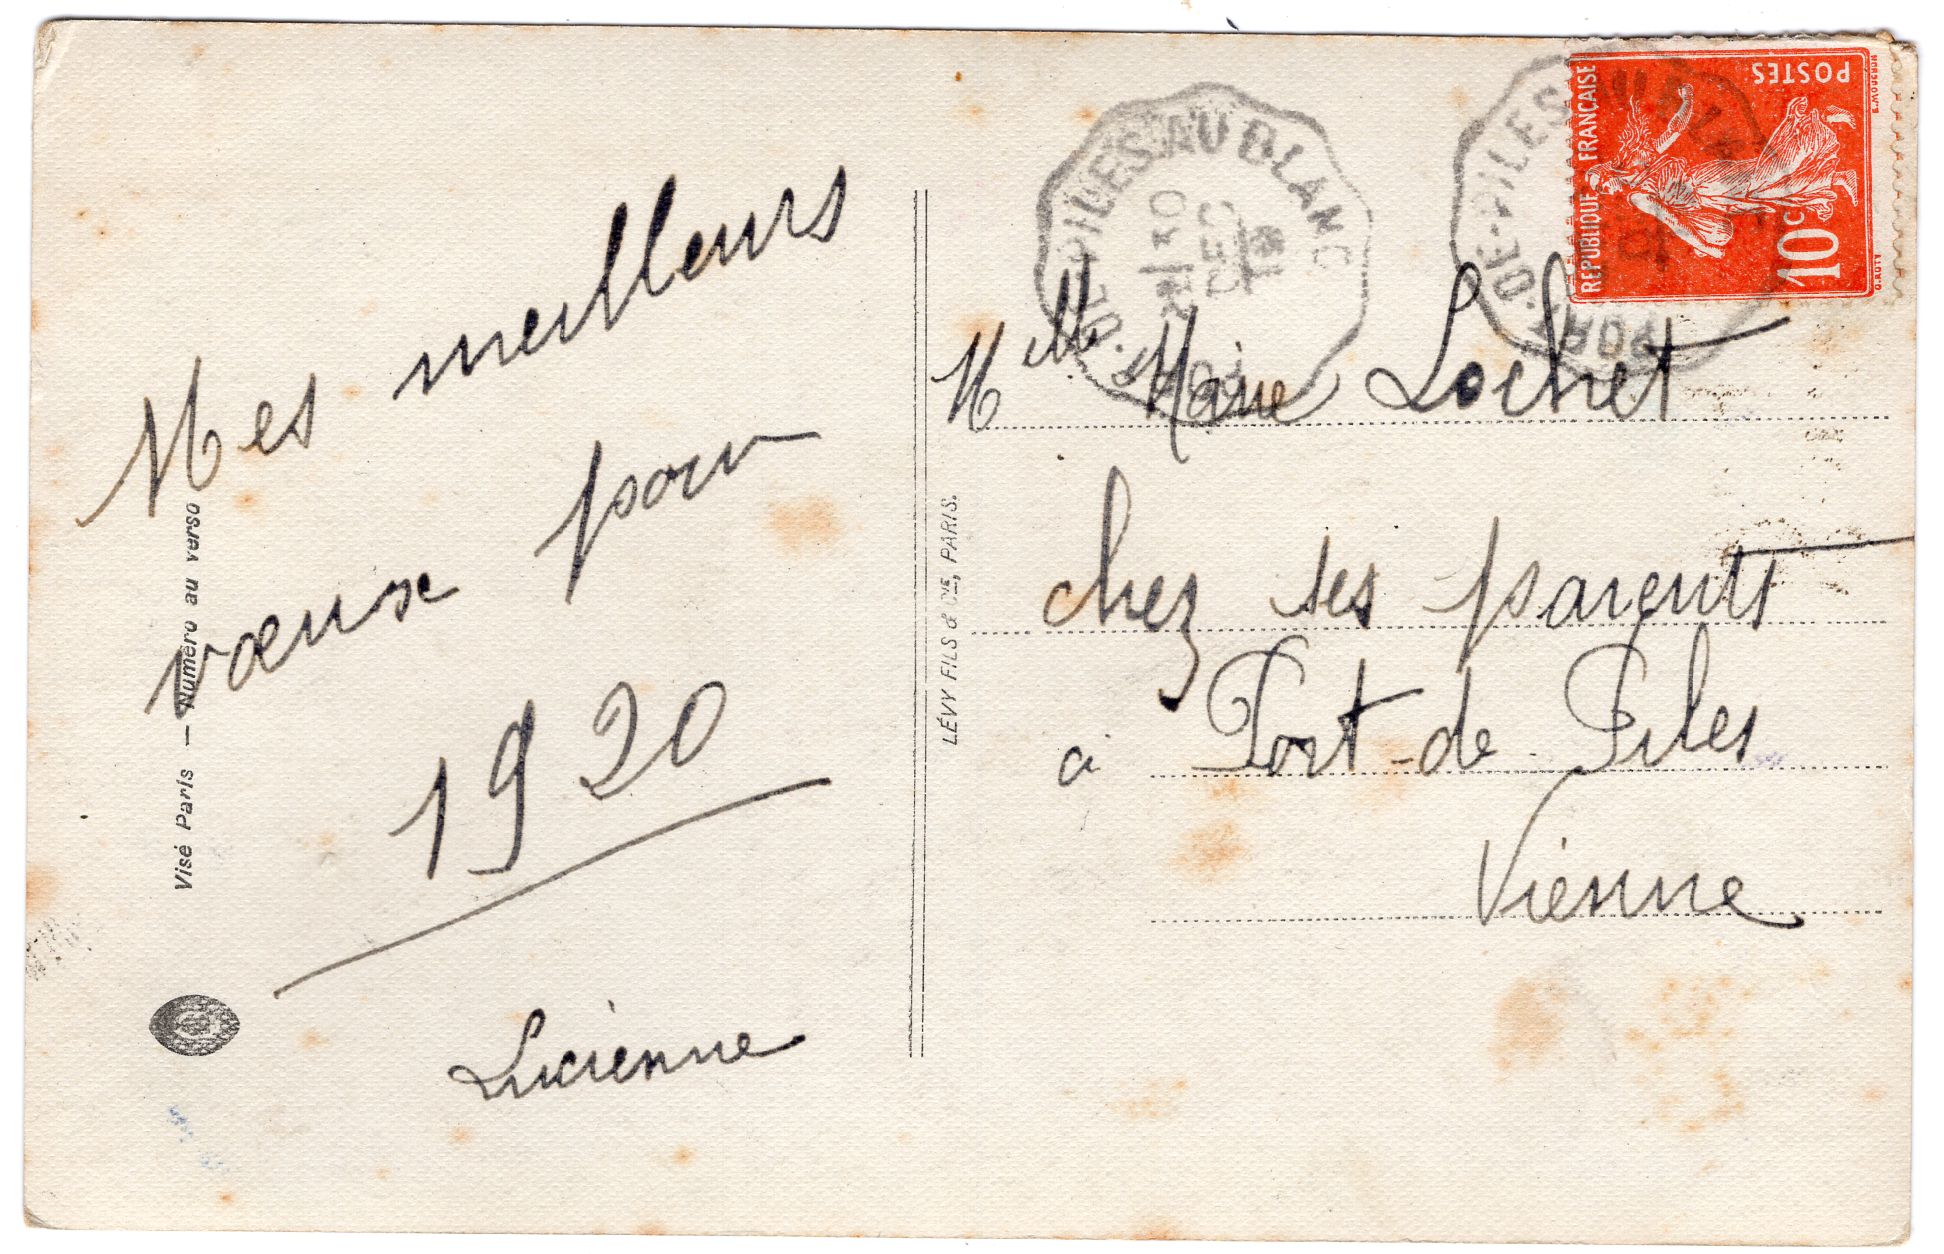 Mes meilleurs
vœux pour
1920
Lucienne
Visé Paris — Numéro au verso
LÉVY FILS & Cie, PARIS.
PORT-DE-PILES AU BLANC
30
DEC
19
PORT-DE-PILES AU BLANC
REPUBLIQUE FRANÇAISE
POSTES
10c
E. MOUCHON
O. ROTY
Mlle Marie Lochet
chez ses parents
à Port-de-Piles
Vienne